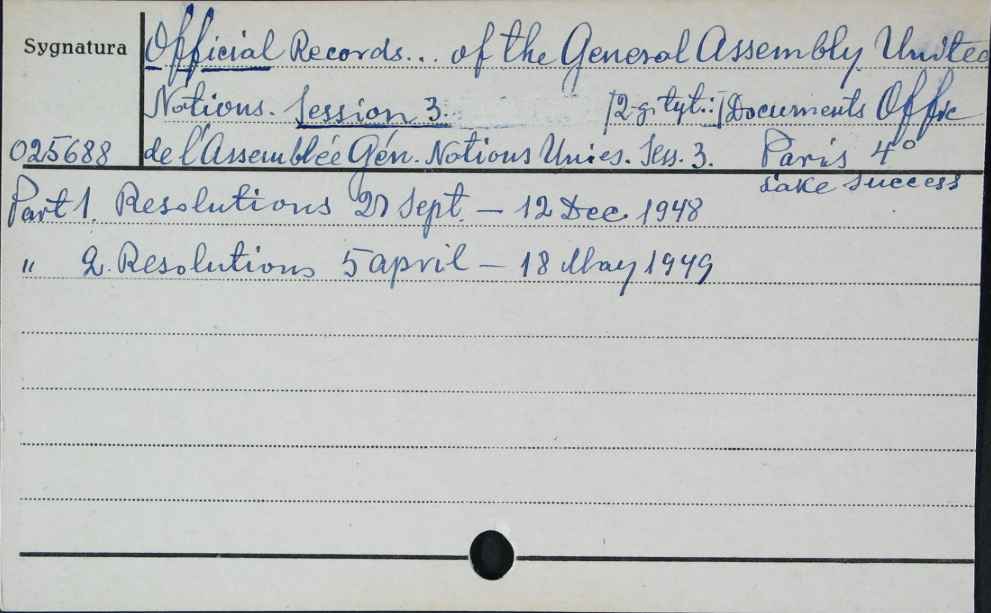 Sygnatura
Official Records... of the General Assembly United
Nations. Session 3. /2-gi tyt.:/ Documents Offic
025688 de l'Assemblée Gén. Nations Unies. Sess. 3. Paris 4°
Lake Success
Part 1. Resolutions 21 Sept. — 12 Dec. 1948
" 2. Resolutions 5 april — 18 May 1949